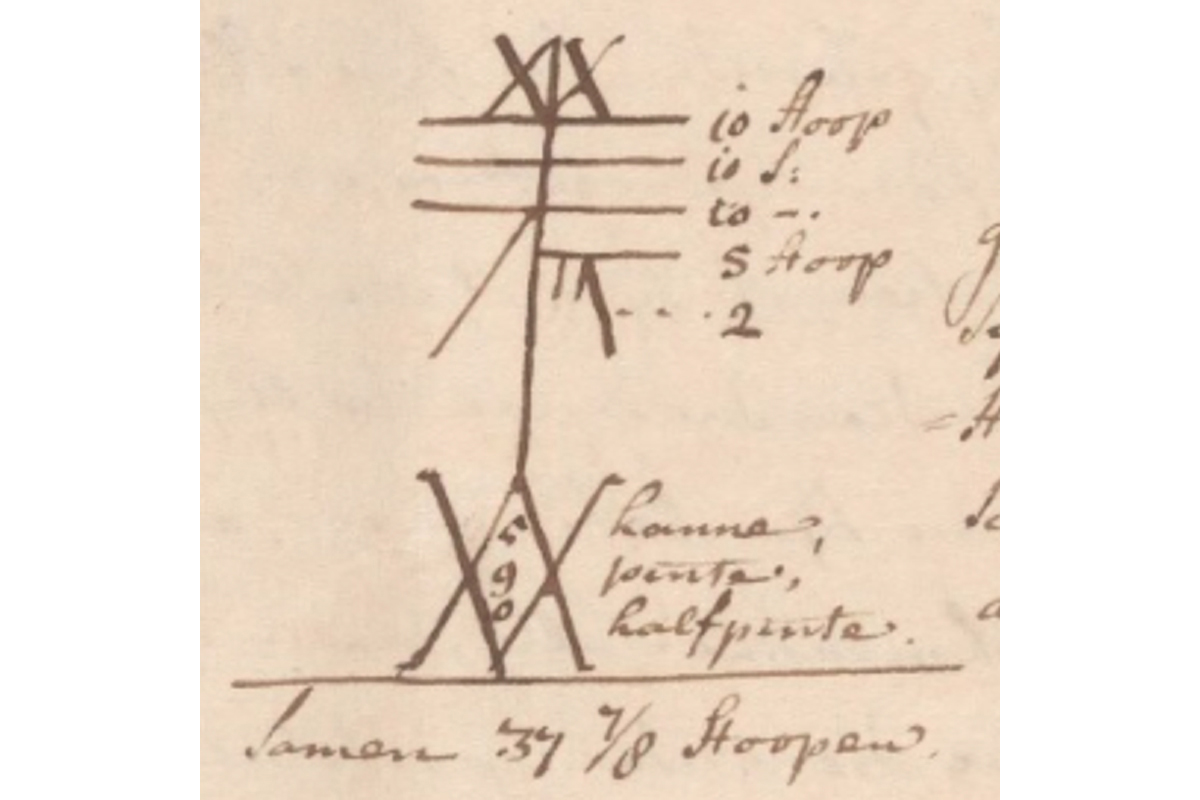 io Stoop
io S:
to -.
5 Stoop
- - . 2
5
9
0
kanne,
pinte,
halfpinte.
Samen 37 7/8 Stoopen.